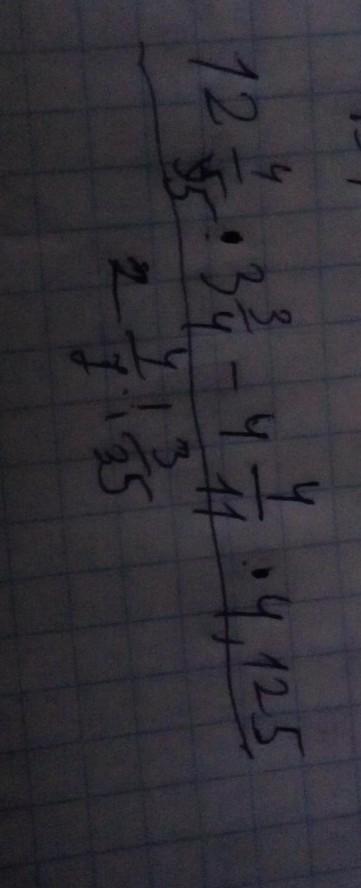 12 4/5 · 3 3/4 − 4 4/11 · 4,125
2 4/7 : 1 3/35